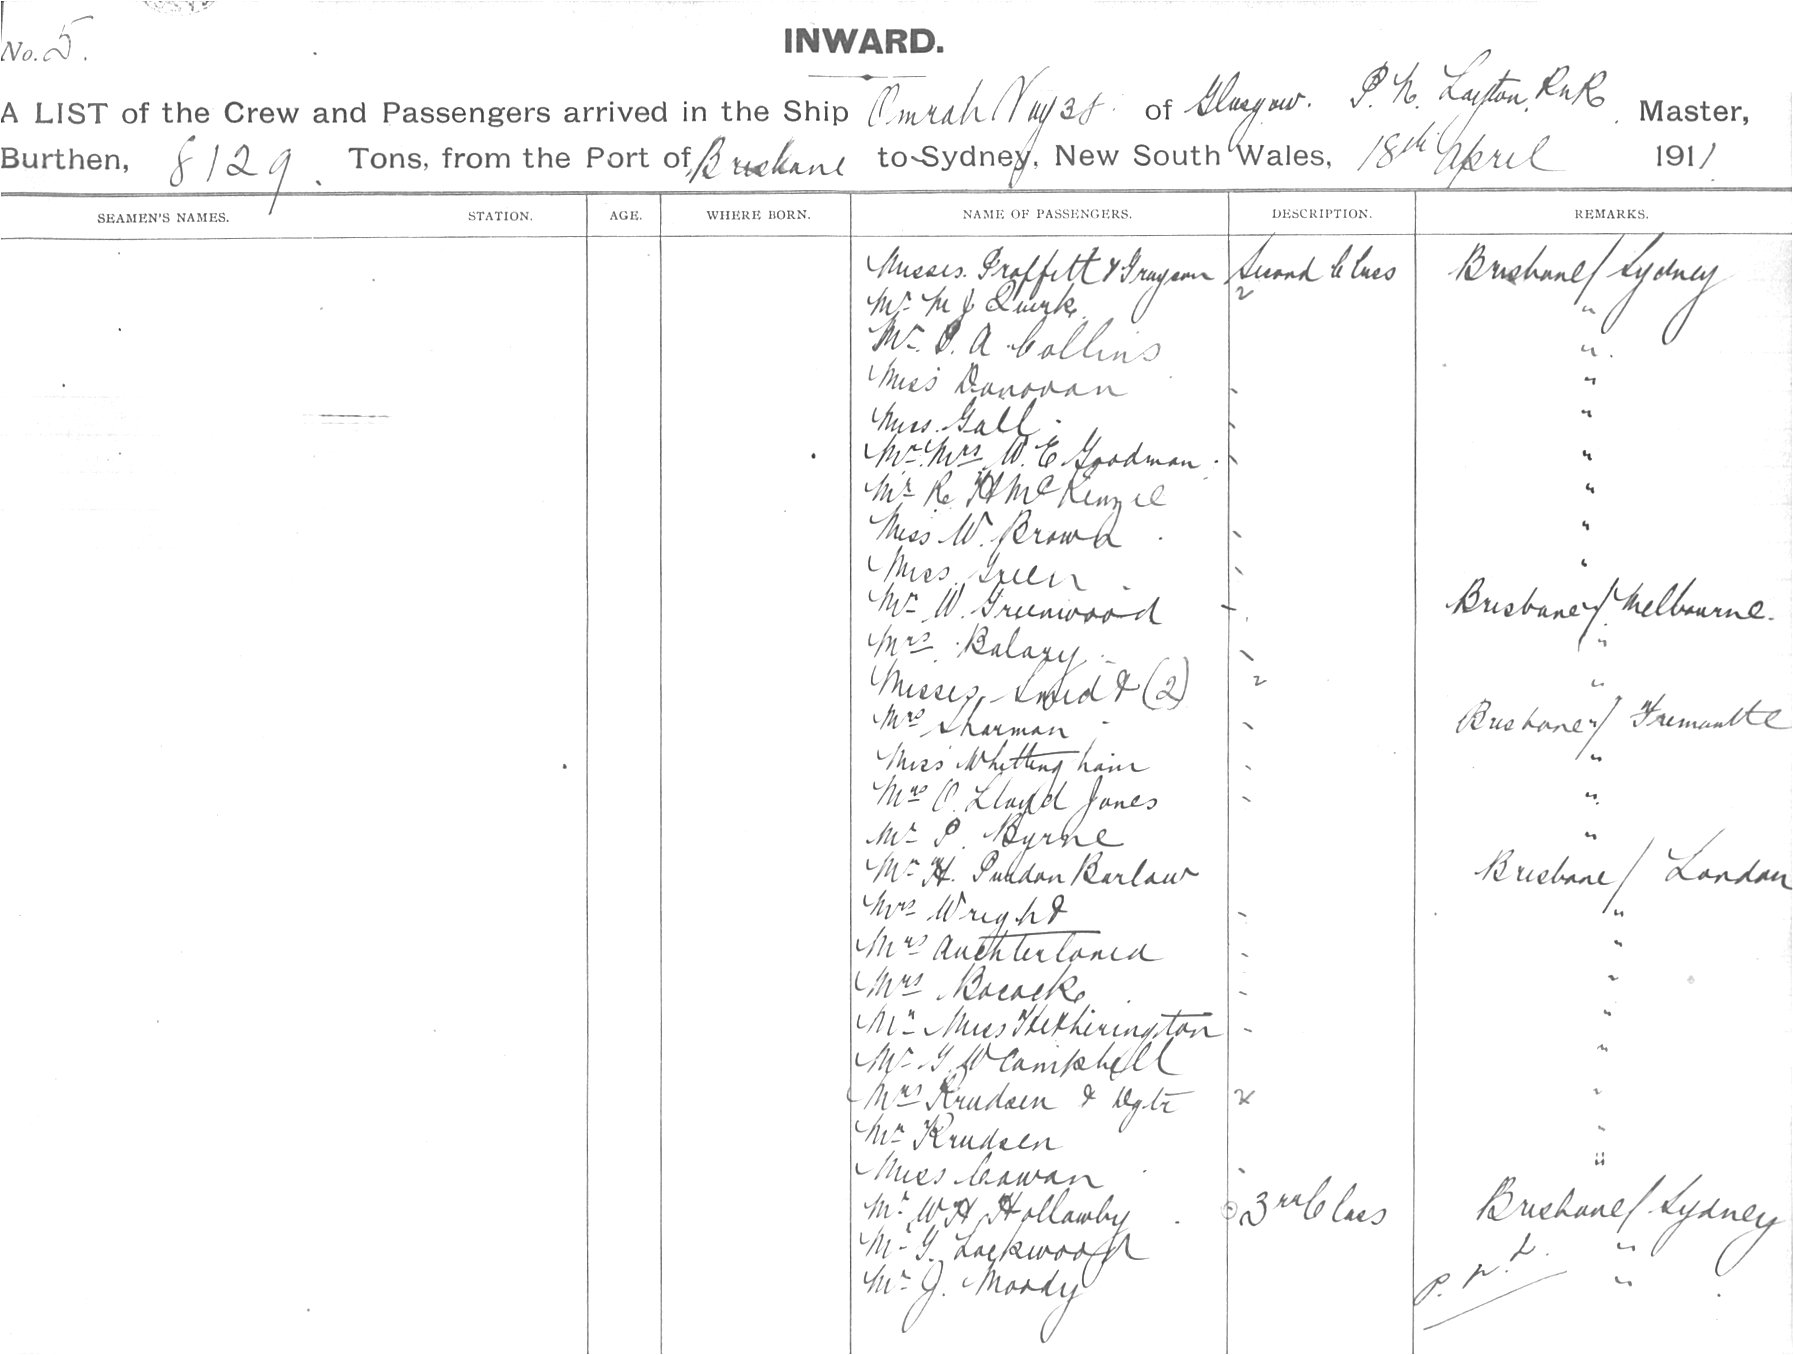 No. 5.
INWARD.
A LIST of the Crew and Passengers arrived in the Ship Omrah Voy 38 of Glasgow. P. N. Layton, RNR. Master,
Burthen, 8129. Tons, from the Port of Brisbane to Sydney, New South Wales, 18th April 1911
SEAMEN'S NAMES. STATION. AGE. WHERE BORN. NAME OF PASSENGERS. DESCRIPTION. REMARKS.
Misses. Proffitt & Grayson Second Class Brisbane / Sydney
Mr M J Quirk "
Mr. P. A. Collins "
Miss Donovan "
Miss Gall "
Mr. Mrs W. E. Goodman "
Mr R. H McKenzie "
Miss W. Brown "
Miss Green "
Mr W. Greenwood Brisbane / Melbourne.
Mrs "
Misses (2) "
Mrs Sharman Brisbane / Fremantle
Miss Whittingham "
Mrs O. Lloyd Jones "
Mr P. Byrne "
Mr H. Purdon Barlow Brisbane / London
Mrs Wright "
Mrs "
Mrs Bocock "
Mr Miss Hetherington "
Mr G. W Campbell "
Mrs Knudsen & Dgtr "
Mr Knudsen "
Miss Cowan "
Mr W H Hollamby 3rd Class Brisbane / Sydney
Mr G. Lockwood "
Mr J. Moody "
P. N. L.